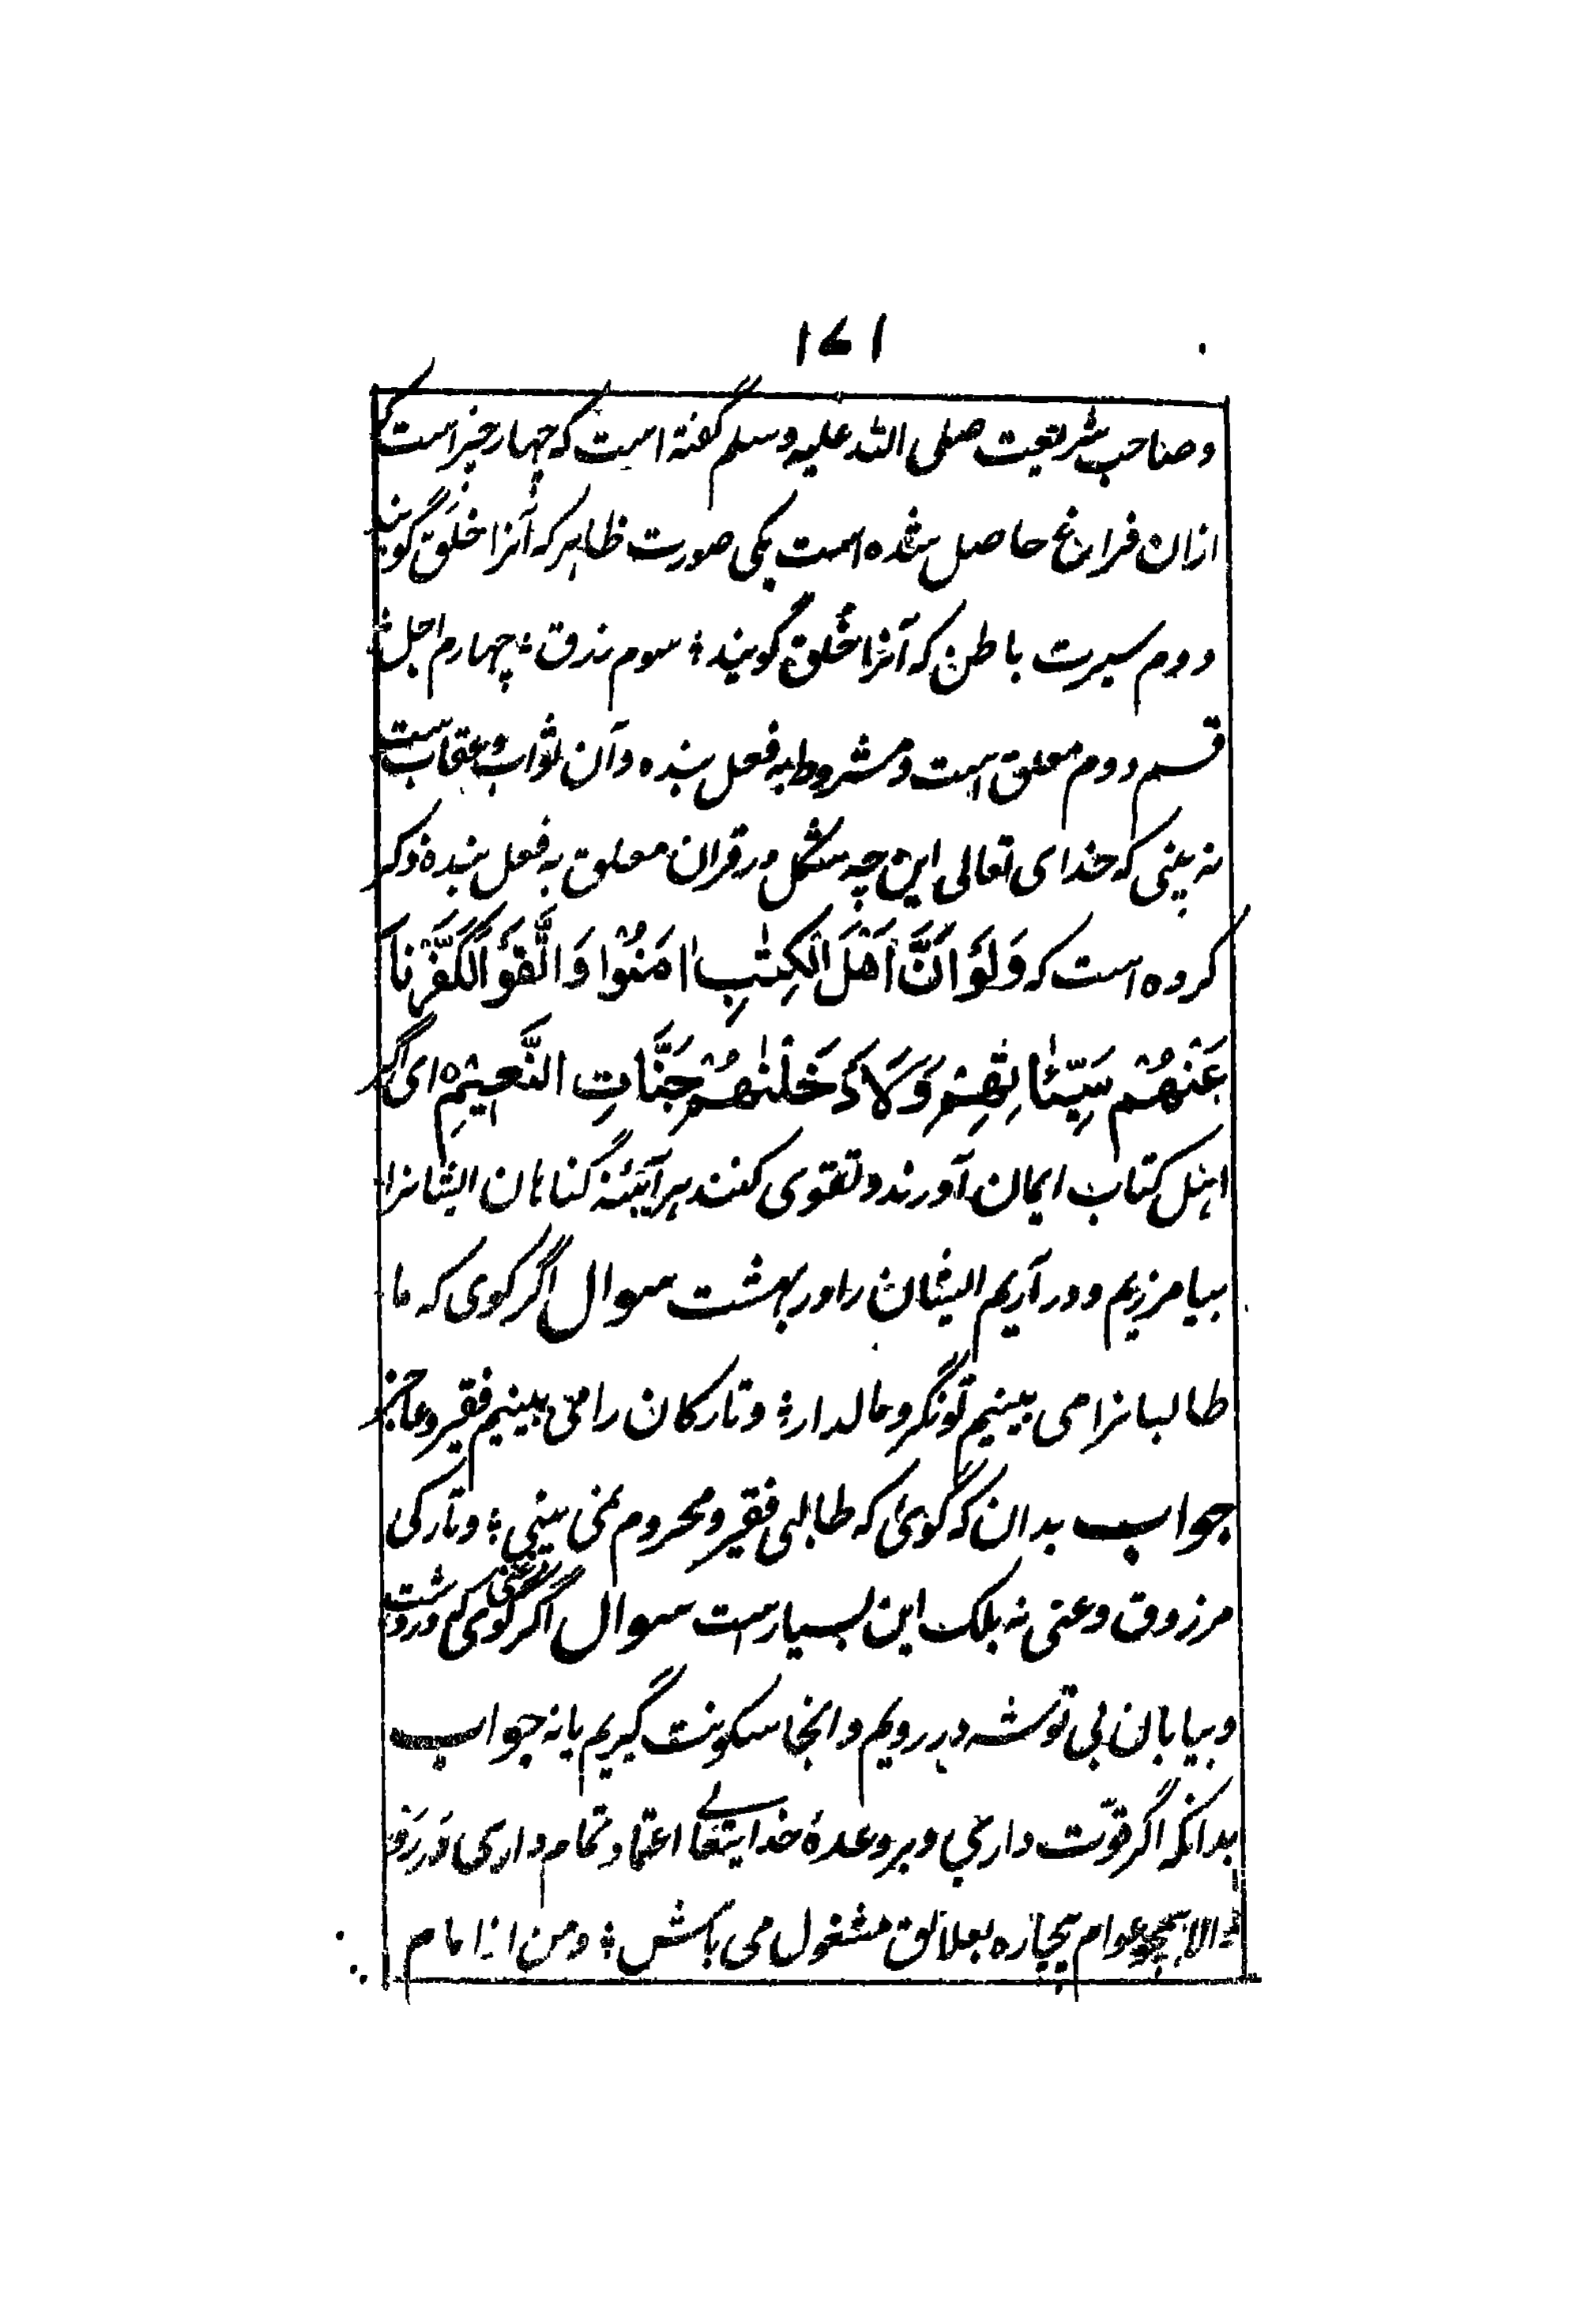 ۱۷۱
و صاحب شریعت صلی اللہ علیه و سلم گفته است که چهار چیز است که
ازان فراغ حاصل شده است یکی صورت ظاهر که آنرا خَلق گویند
دوم سیرت باطن که آنرا خُلق گویند ؛ سوم رزق ؛ چهارم اجل ؛
قسم دوم معلق است و مشروط به فعل بنده و آن ثواب و عقاب ست
نه بینی که خدای تعالی این چه شکل در قران معلق به فعل بنده ذکر
کرده است که وَلَوْ اَنَّ اَهْلَ الْكِتٰبِ اٰمَنُوْا وَاتَّقَوْا لَكَفَّرْنَا
عَنْهُمْ سَيِّئٰاتِهِمْ وَلَاَدْخَلْنٰهُمْ جَنَّاتِ النَّعِيْمِ ه ای اگر
اهل کتاب ایمان آورند و تقوی کنند هر آئینه گناهان ایشانرا
بیامرزیم و در آریم ایشان را در بهشت سوال اگر گوی که ما
طالبانرا می بینیم تونگر و مالدار ؛ و تارکان را می بینیم فقیر و عاجز
جواب بدان که گوئ که طالبی فقیر و محروم نمی بینی ؛ و تارکی
مرزوق و غنی نه بلک این بسیار است سوال اگر گوی که در دشت
و بیابان بی توشه در رویم و انجا سکونت گیریم یا نه جواب
بدانکه اگر قوّت داری و بر وعدهٔ خدایتعالے اعتماد تمام داری دررَو
و الا همچو عوام بیچاره بعلائق مشغول می باش ؛ و من از امام